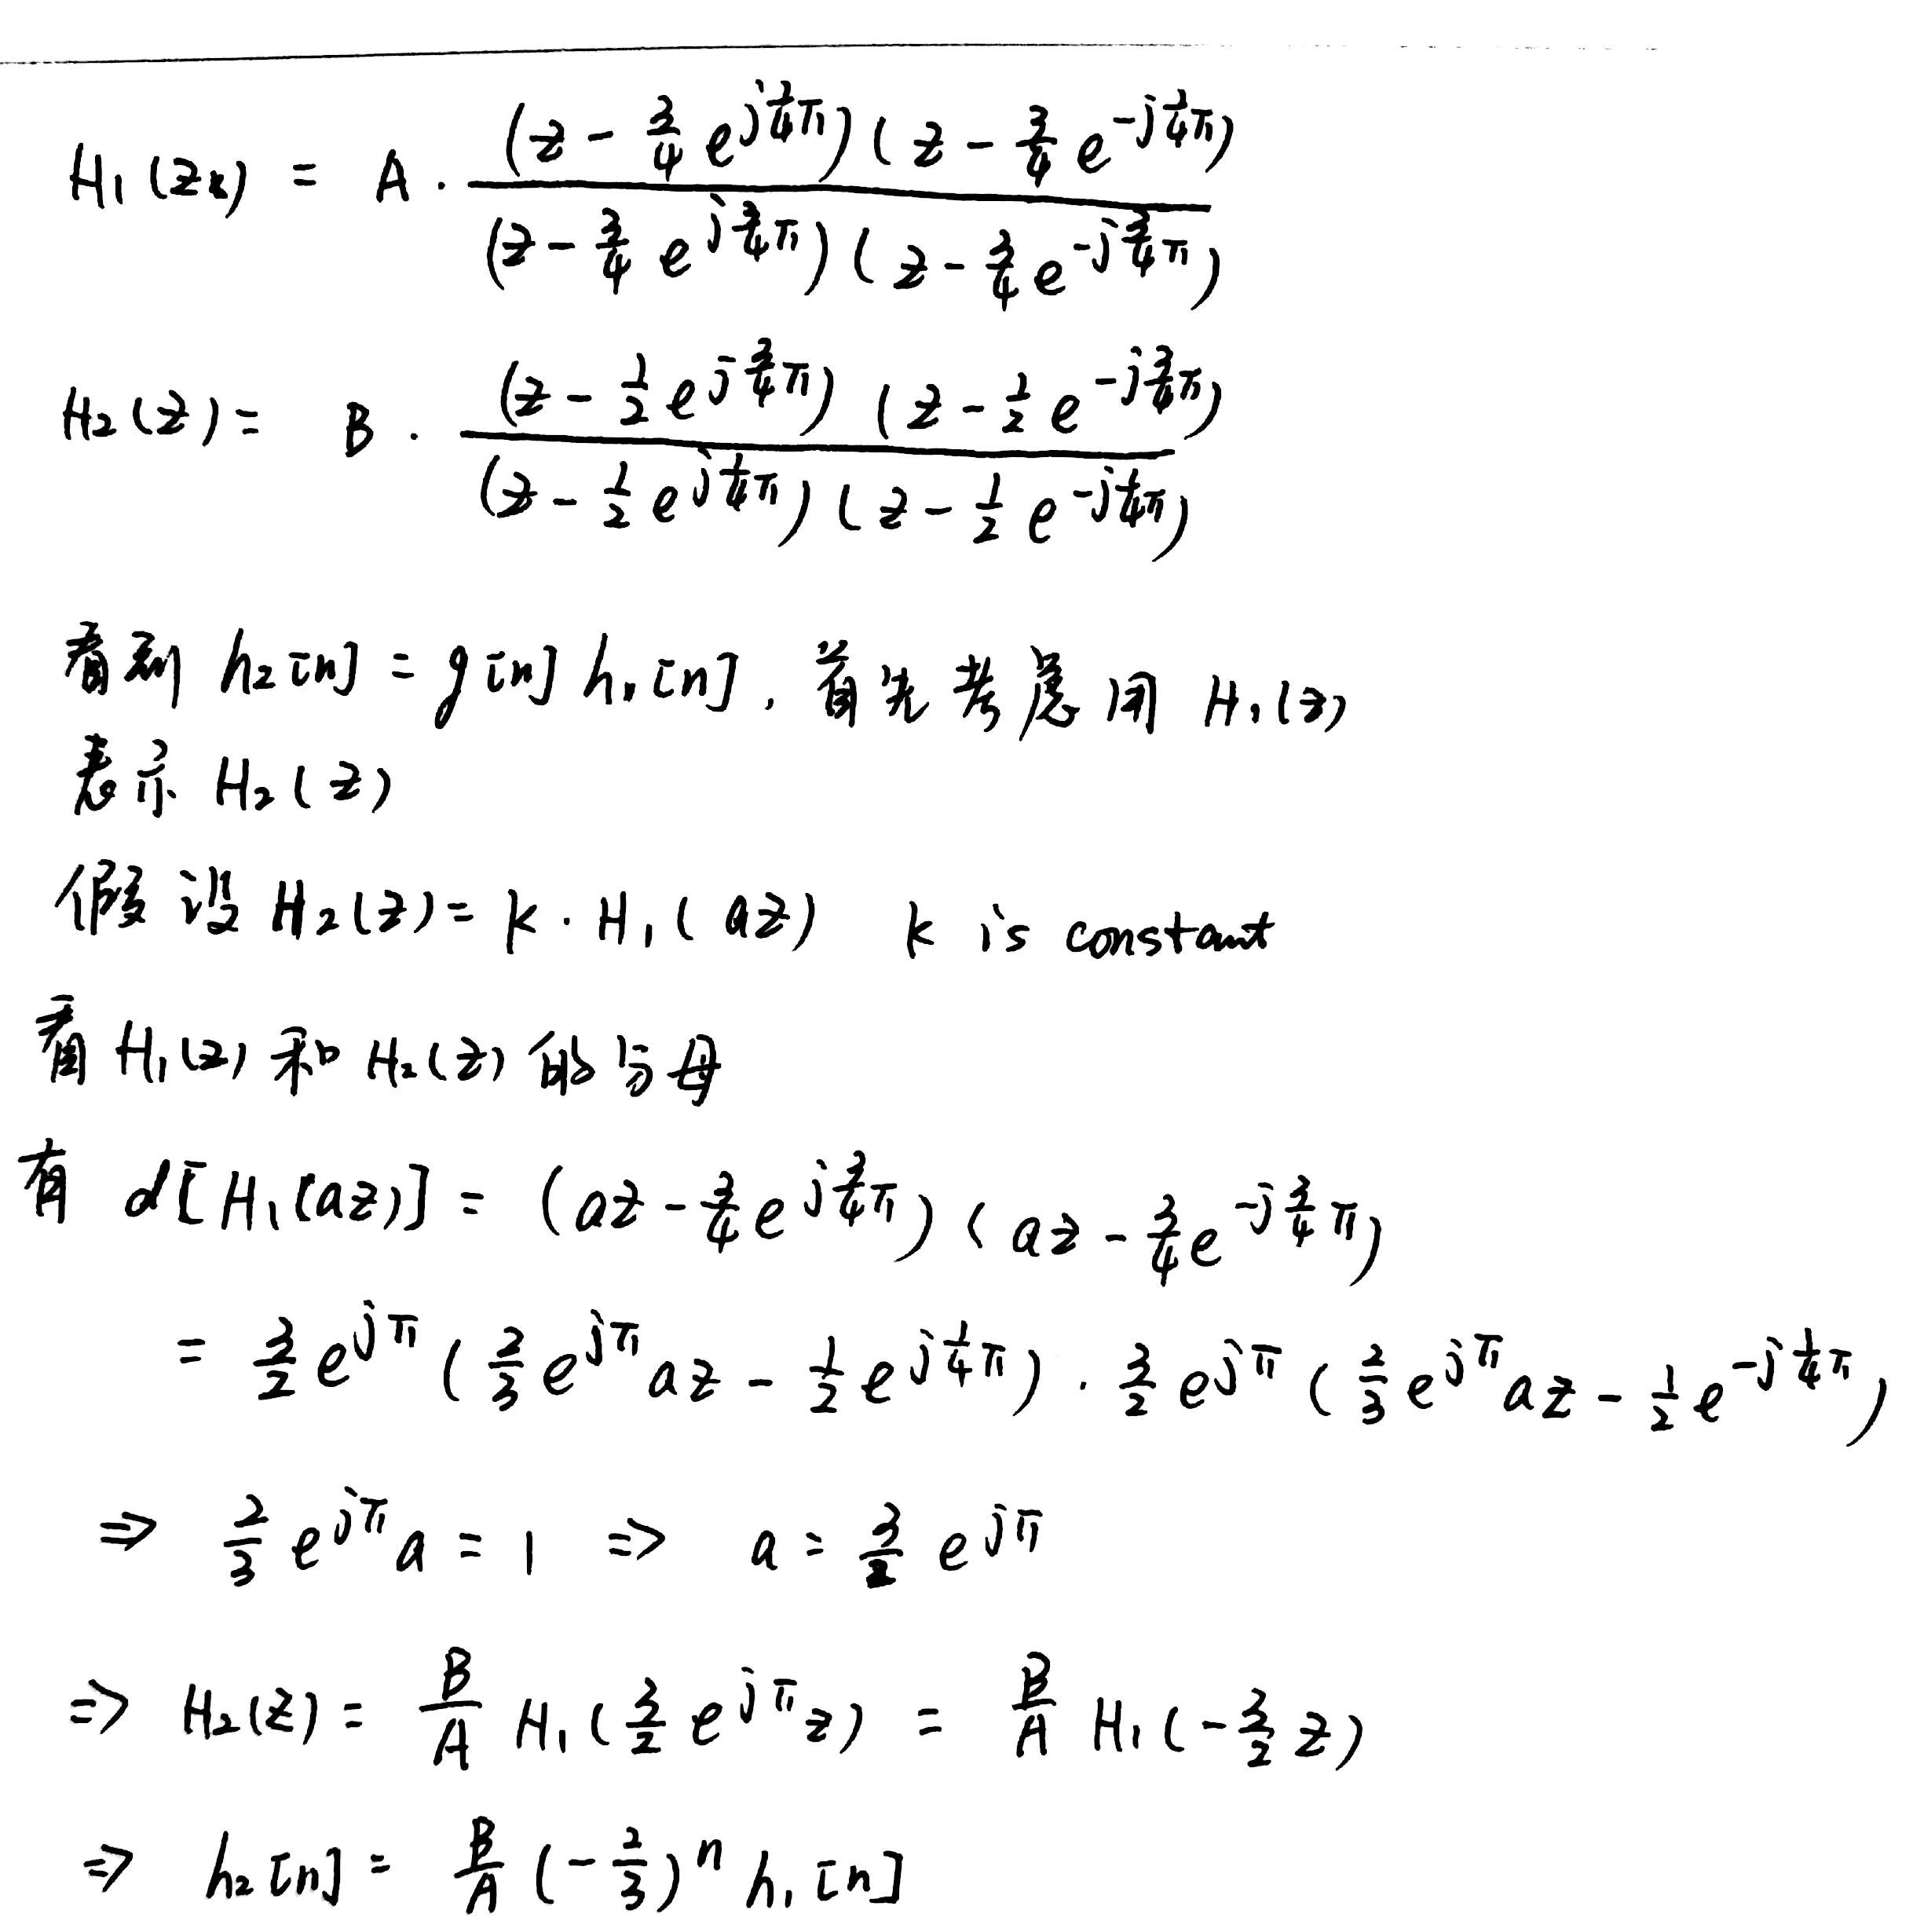 H₁(z) = A · \frac{(z - \frac{3}{4} e^{j\frac{1}{4}π}) (z - \frac{3}{4} e^{-j\frac{1}{4}π})}{(z - \frac{3}{4} e^{j\frac{3}{4}π}) (z - \frac{3}{4} e^{-j\frac{3}{4}π})}
H₂(z) = B · \frac{(z - \frac{1}{2} e^{j\frac{3}{4}π}) (z - \frac{1}{2} e^{-j\frac{3}{4}π})}{(z - \frac{1}{2} e^{j\frac{1}{4}π}) (z - \frac{1}{2} e^{-j\frac{1}{4}π})}
看到 h₂[n] = g[n] h₁[n], 首先考虑用 H₁(z)
表示 H₂(z)
假设 H₂(z) = k · H₁(az) k is constant
看 H₁(z) 和 H₂(z) 的分母
有 d[H₁(az)] = (az - \frac{3}{4} e^{j\frac{3}{4}π}) (az - \frac{3}{4} e^{-j\frac{3}{4}π})
= \frac{3}{2} e^{jπ} (\frac{2}{3} e^{jπ} az - \frac{1}{2} e^{j\frac{1}{4}π}) · \frac{3}{2} e^{jπ} (\frac{2}{3} e^{jπ} az - \frac{1}{2} e^{-j\frac{1}{4}π})
⇒ \frac{2}{3} e^{jπ} a = 1 ⇒ a = \frac{3}{2} e^{jπ}
⇒ H₂(z) = \frac{B}{A} H₁(\frac{3}{2} e^{jπ} z) = \frac{B}{A} H₁(-\frac{3}{2} z)
⇒ h₂[n] = \frac{B}{A} (-\frac{2}{3})^n h₁[n]